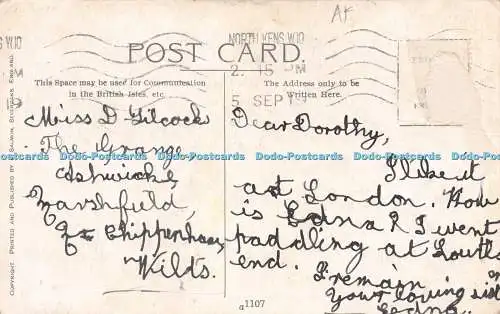 NORTH KENS. W.10
2. 15 PM
5 SEP 19
AF
POST CARD.
This Space may be used for Communication
in the British Isles, etc.
The Address only to be
Written Here.
Miss D Silcocks
The Grange
Ashwicke,
Marshfield,
Chippenham,
Wilds.
Dear Dorothy,
I like it
at London. How
is Edna & I went
paddling at South
end.
I remain
Your loving sist
Edna
COPYRIGHT. PRINTED AND PUBLISHED BY J. SALMON, SEVENOAKS, ENGLAND.
a1107
Dodo-Postcards Dodo-Postcards Dodo-Postcards Dodo-Postcards Dodo-Postcards Dodo-Postcards